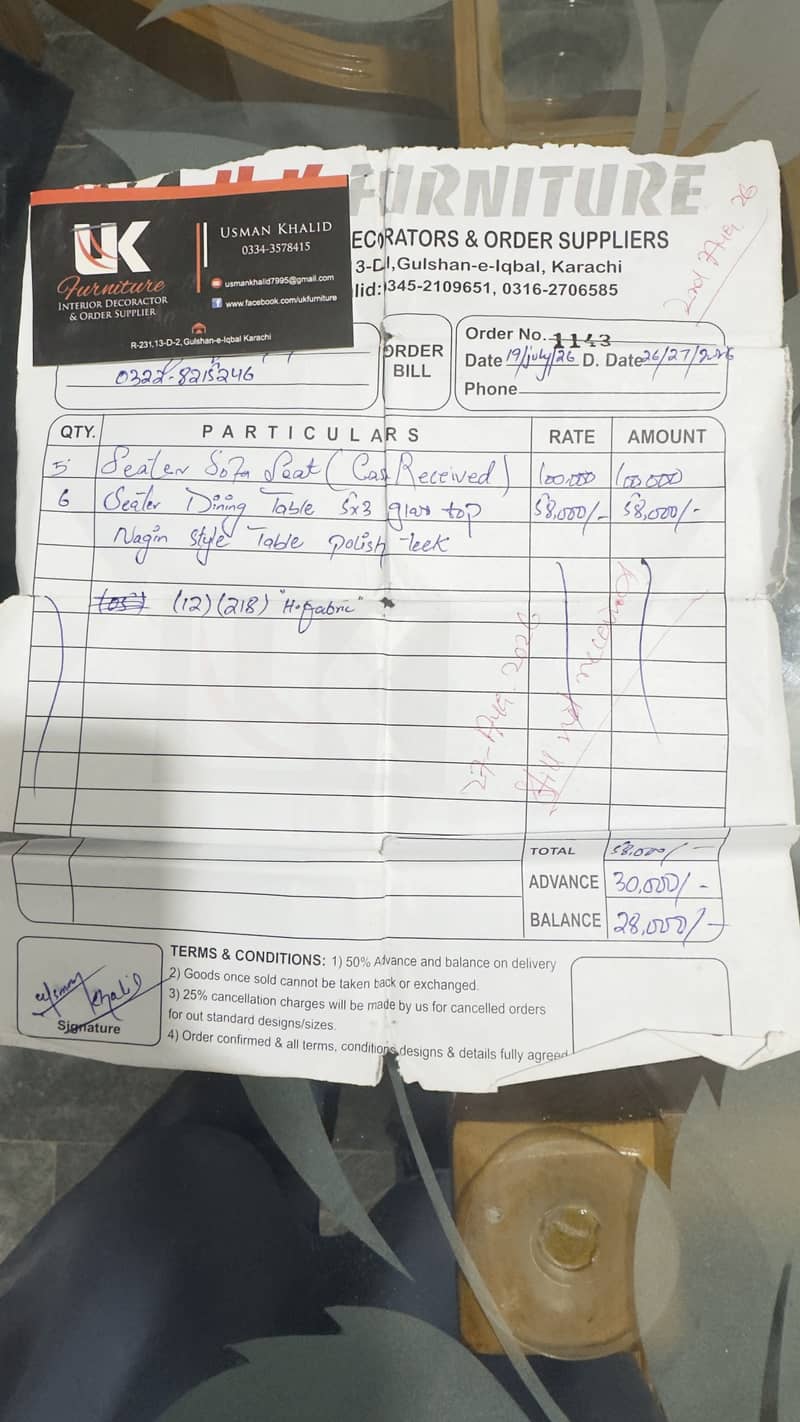 UK FURNITURE
UK
Furniture
INTERIOR DECORATOR
& ORDER SUPPLIER
USMAN KHALID
0334-3578415
usmankhalid7995@gmail.com
www.facebook.com/ukfurniture
R-231,13-D-2, Gulshan-e-Iqbal Karachi
DECORATORS & ORDER SUPPLIERS
Gulshan-e-Iqbal, Karachi
0345-2109651, 0316-2706585
2nd Aug. 26
0322-8215246
ORDER
BILL
Order No. 1143
Date 19/july/26 D. Date 26/27/
Phone
QTY. PARTICULARS RATE AMOUNT
5 Seater Sofa Seat ( Received) 100,000 100,000
6 Seater Dining Table 5x3 glass top 58,000/- 58,000/-
Nagin Style Table polish teek
(12) (218) "H.fabric"
27-Aug. 2026
Still not received
TOTAL 58,000/-
ADVANCE 30,000/-
BALANCE 28,000/-
Usman Khalid
Signature
TERMS & CONDITIONS: 1) 50% Advance and balance on delivery
2) Goods once sold cannot be taken back or exchanged.
3) 25% cancellation charges will be made by us for cancelled orders
for out standard designs/sizes.
4) Order confirmed & all terms, conditions designs & details fully agreed